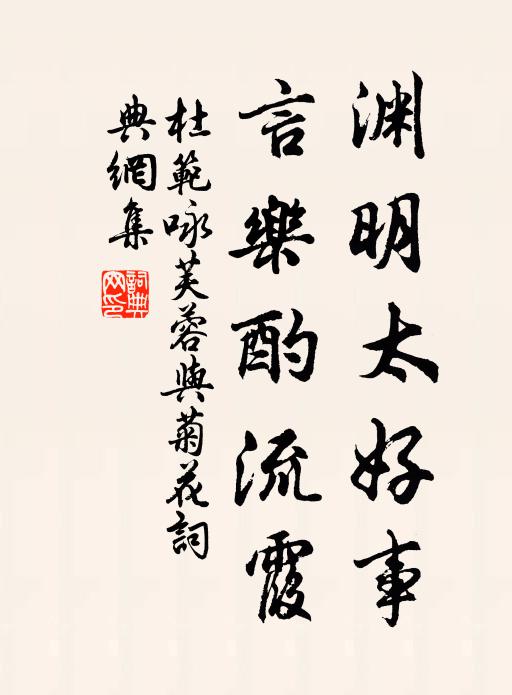 渊明太好事
言樂酌流霞
杜範咏芙蓉與菊花詞
典網集
詞典網印